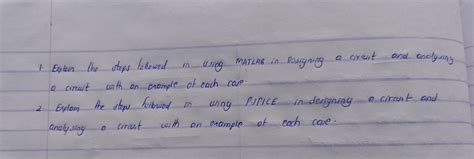 1. Explain the steps followed in using MATLAB in designing a circuit and analysing
a circuit with an example of each case.
2. Explain the steps followed in using PSPICE in designing a circuit and
analysing a circuit with an example of each case.